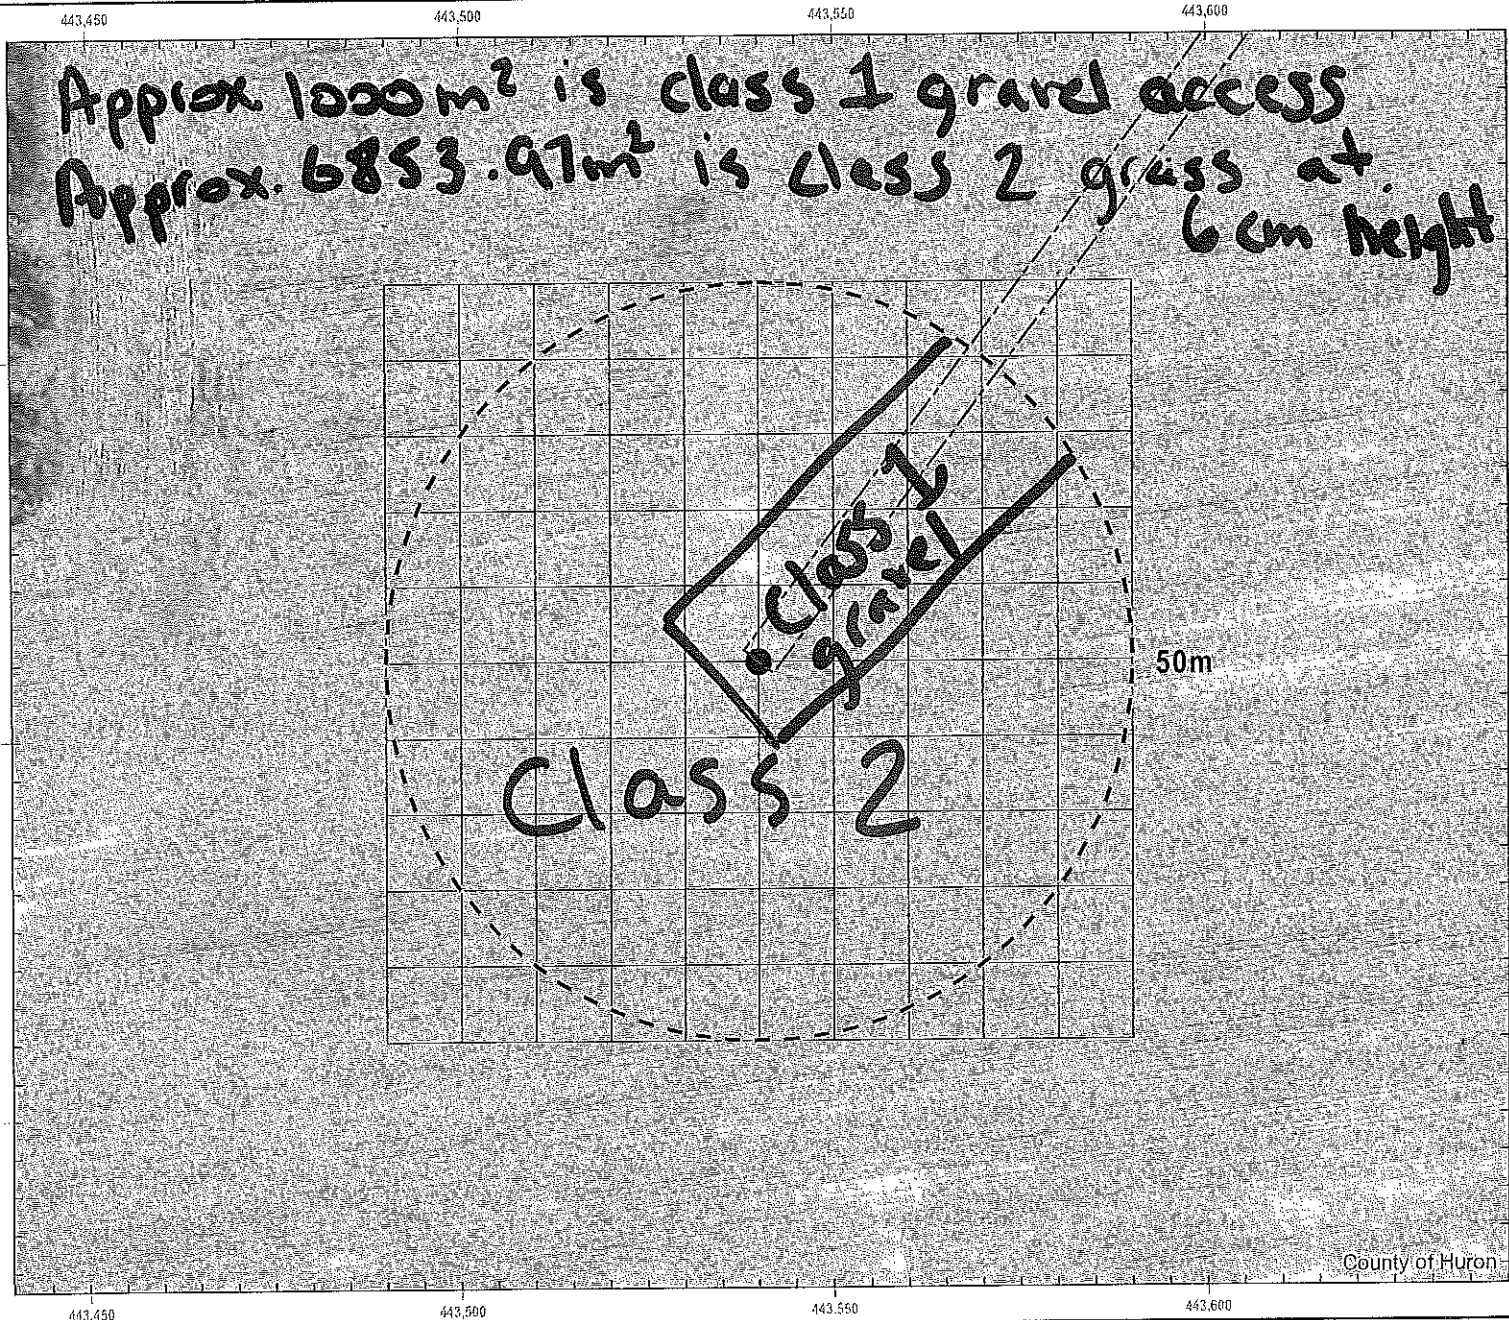 443,450 443,500 443,550 443,600
Approx. 1000m² is class 1 gravel access
Approx. 6853.97m² is class 2 grass at.
6 cm height
Class 1
gravel
50m
Class 2
County of Huron
443,450 443,500 443,550 443,600